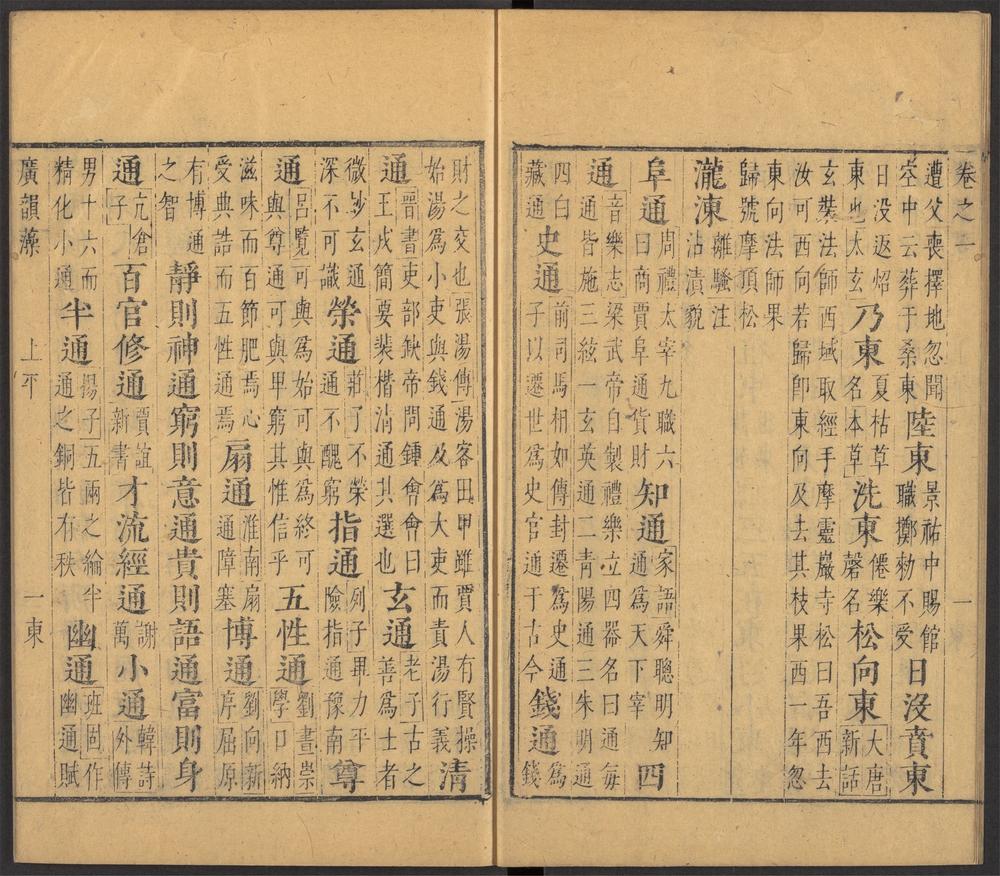 卷之二 一
遭父喪擇地忽聞空中云葬于桑東陸東景祐中賜館職擲勑不受日没賁東
日没返炤東也太玄乃東夏枯草名本草洗東僊樂磬名松向東大唐新話
玄奘法師西域取經手摩靈巖寺松曰吾西去汝可西向若歸卽東向及去其枝果西一年忽
東向法師果歸號摩頂松
瀧涷離騷注沾漬貌
阜通周禮太宰九職六曰商賈阜通貨財知通家語舜聰明知通爲天下宰四
通音樂志梁武帝自製禮樂立四器名曰通每通皆施三絃一玄英通二青陽通三朱明通
四白藏通史通前司馬相如傳封遷爲史通子以遷世爲史官通于古今錢通爲錢
財之交也張湯傳湯客田甲雖賈人有賢操始湯爲小吏與錢通及爲大吏而責湯行義清
通晉書吏部缺帝問鍾會會曰王戎簡要裴楷清通其選也玄通老子古之善爲士者
微妙玄通深不可識榮通莊子不榮通不醜窮指通列子畢力平險指通豫南尊
通呂覽可與爲始可與爲終可與尊通可與卑窮其惟信乎五性通劉晝崇學口納
滋味而百節肥焉心受典誥而五性通焉扇通淮南扇通障塞博通劉向新序屈原
有博通之智靜則神通窮則意通貴則語通富則身
通亢倉子百官修通賈誼新書才流經通謝萬小通韓詩外傳
男十六而精化小通半通揚子五兩之綸半通之銅皆有秩幽通班固作幽通賦
廣韻藻 上平 一東